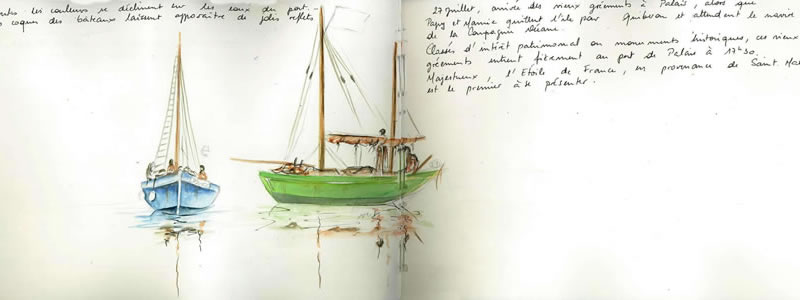 utes les couleurs se déclinent sur les eaux du port.
s coques des bateaux laissent apparaître de jolis reflets
27 juillet, arrivée des vieux gréements à Palais, alors que
Papy et Mamie quittent l'île par Quiberon et attendent le navire
de la Compagnie Océane.
Classés d'intérêt patrimonial ou monuments historiques, ces vieux
gréements entrent fièrement au port de Palais à 17h30.
Majestueux, l'Etoile de France, en provenance de Saint Ma
est le premier à se présenter.